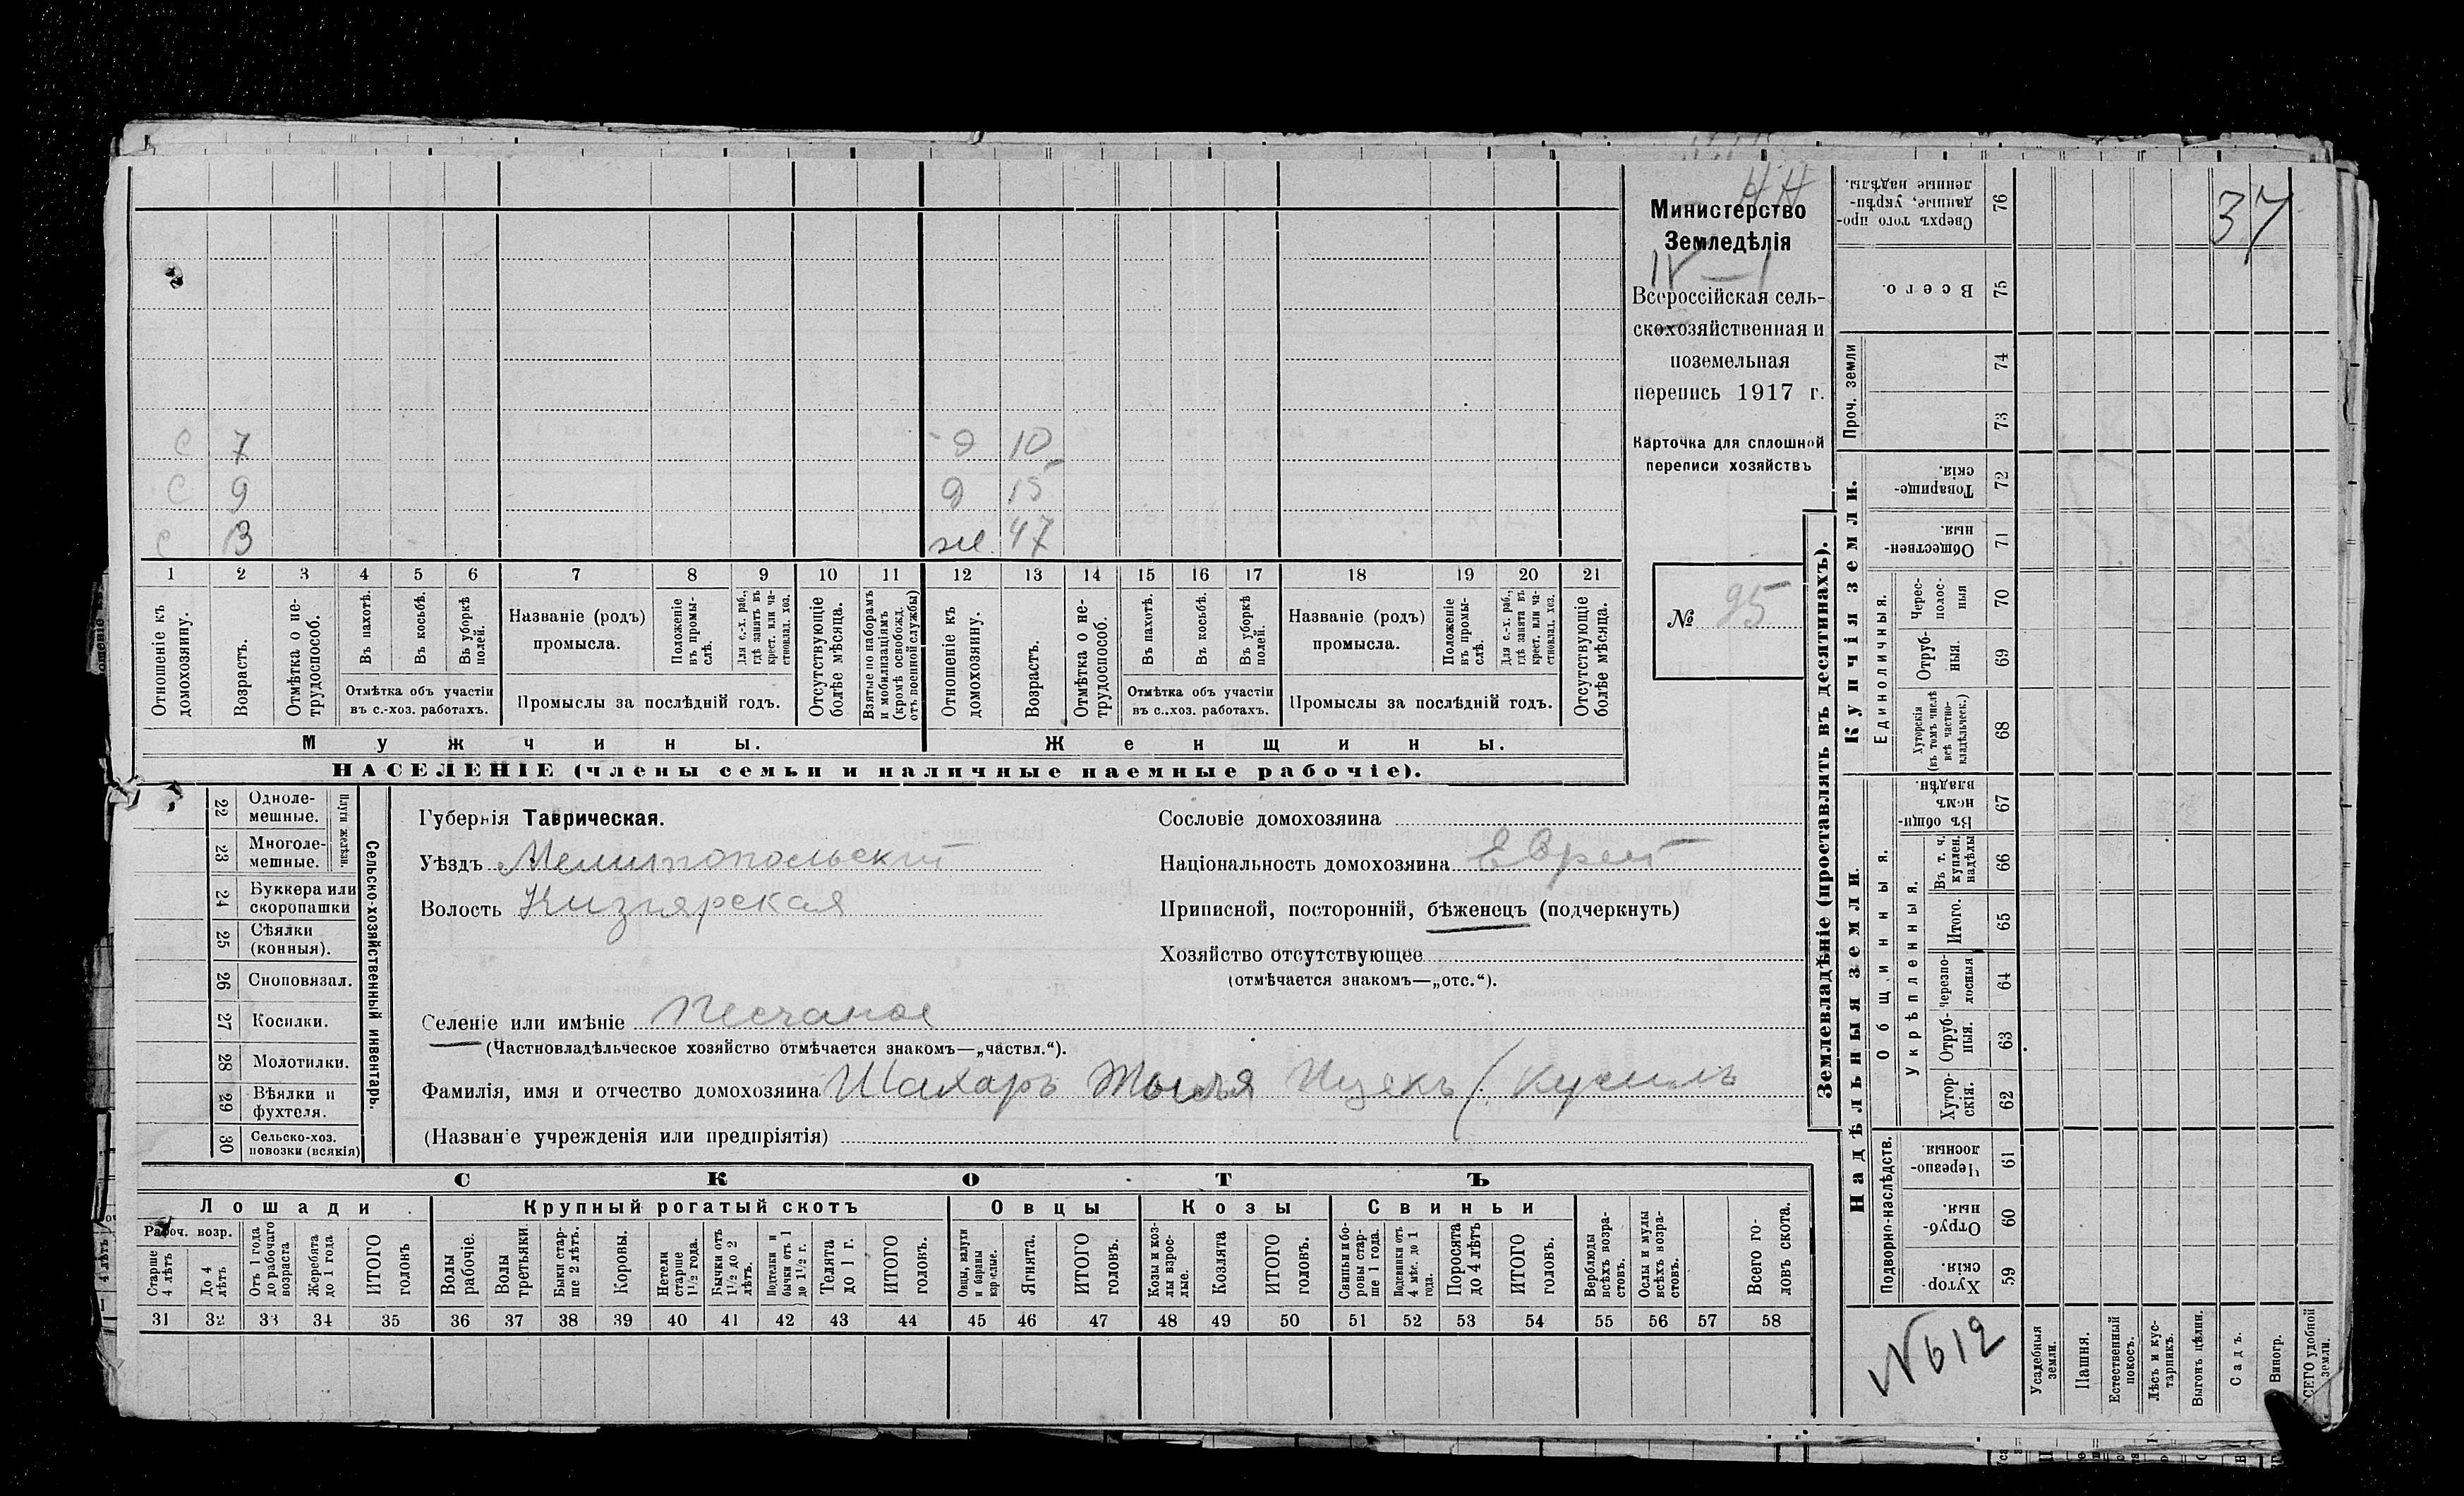 37
НН
Министерство
Земледѣлія
IV — 1
Всероссійская сель-
скохозяйственная и
поземельная
перепись 1917 г.
Карточка для сплошной
переписи хозяйствъ
№ 95
с 7 д 10
с 9 д 15
с 13 ж 47
1 2 3 4 5 6 7 8 9 10 11 12 13 14 15 16 17 18 19 20 21
Отношеніе къ домохозяину.
Возрастъ.
Отмѣтка о не-трудоспособ.
Въ пахотѣ.
Въ косьбѣ.
Въ уборкѣ полей.
Отмѣтка объ участіи въ с.-хоз. работахъ.
Названіе (родъ) промысла.
Положеніе въ промы-слѣ.
Для с.-х. раб., гдѣ занятъ въ крест. или ча-стновлад. хоз.
Промыслы за послѣдній годъ.
Отсутствующіе болѣе мѣсяца.
Взятые по наборамъ и мобилизаціямъ (кромѣ освобожд. отъ военной службы)
Отношеніе къ домохозяину.
Возрастъ.
Отмѣтка о не-трудоспособ.
Въ пахотѣ.
Въ косьбѣ.
Въ уборкѣ полей.
Отмѣтка объ участіи въ с.-хоз. работахъ.
Названіе (родъ) промысла.
Положеніе въ промы-слѣ.
Для с.-х. раб., гдѣ занята въ крест. или ча-стновлад. хоз.
Промыслы за послѣдній годъ.
Отсутствующіе болѣе мѣсяца.
Мужчины. Женщины.
НАСЕЛЕНІЕ (члены семьи и наличные наемные рабочіе).
Сельско-хозяйственный инвентарь.
Плуги желѣзн.
22 Одноле-мешные.
23 Многоле-мешные.
24 Буккера или скоропашки
25 Сѣялки (конныя).
26 Сноповязал.
27 Косилки.
28 Молотилки.
29 Вѣялки и фухтеля.
30 Сельско-хоз. повозки (всякія)
Губернія Таврическая.
Уѣздъ Мелитопольскій
Волость Кизіярская
Сословіе домохозяина
Національность домохозяина Еврей
Приписной, посторонній, бѣженецъ (подчеркнуть)
Хозяйство отсутствующее
(отмѣчается знакомъ—„отс.“).
Селеніе или имѣніе Песчаное
(Частновладѣльческое хозяйство отмѣчается знакомъ—„частвл.“).
Фамилія, имя и отчество домохозяина Шахаръ Ицекъ ( Кусиль
(Названіе учрежденія или предпріятія)
СКОТЪ
Лошади Крупный рогатый скотъ Овцы Козы Свиньи
Рабоч. возр.
Старше 4 лѣтъ
До 4 лѣтъ
Отъ 1 года до рабочаго возраста
Жеребята до 1 года
ИТОГО головъ
Волы рабочіе.
Волы третьяки
Быки стар-ше 2 лѣтъ.
Коровы.
Нетели старше 1½ года.
Бычки отъ 1½ до 2 лѣтъ.
Подтелки и бычки отъ 1 до 1½ г.
Телята до 1 г.
ИТОГО головъ.
Овцы, валухи и бараны взрослые.
Ягнята.
ИТОГО головъ.
Козы и коз-лы взрос-лые.
Козлята
ИТОГО головъ.
Свиньи и бо-ровы стар-ше 1 года.
Подсвинки отъ 4 мѣс. до 1 года.
Поросята до 4 лѣтъ
ИТОГО головъ.
Верблюды всѣхъ возра-стовъ.
Ослы и мулы всѣхъ возра-стовъ.
Всего го-ловъ скота.
31 32 33 34 35 36 37 38 39 40 41 42 43 44 45 46 47 48 49 50 51 52 53 54 55 56 57 58
Землевладѣніе (проставлять въ десятинахъ).
Надѣльныя земли. Купчія земли. Проч. земли
Подворно-наслѣдств.
Общинныя.
Укрѣпленныя.
Единоличныя.
59 Хутор-скія.
60 Отруб-ныя.
61 Черезпо-лосныя
62 Хутор-скія.
63 Отруб-ныя.
64 Черезпо-лосныя
65 Итого.
66 Въ т. ч. куплен. надѣлы
67 Въ общи-номъ владѣн.
68 Хуторскія (въ томъ числѣ всѣ частно-владѣльческ.)
69 Отруб-ныя.
70 Черес-полос-ныя
71 Обществен-ныя
72 Товарище-скія.
73
74
75 Всего.
76 Сверхъ того про-данные, укрѣп-ленные надѣлы.
№ 612
Усадебныя земли.
Пашня.
Естественный покосъ.
Лѣсъ и кус-тарникъ.
Выгонъ цѣлин.
Садъ.
Виногр.
ВСЕГО удобной земли.